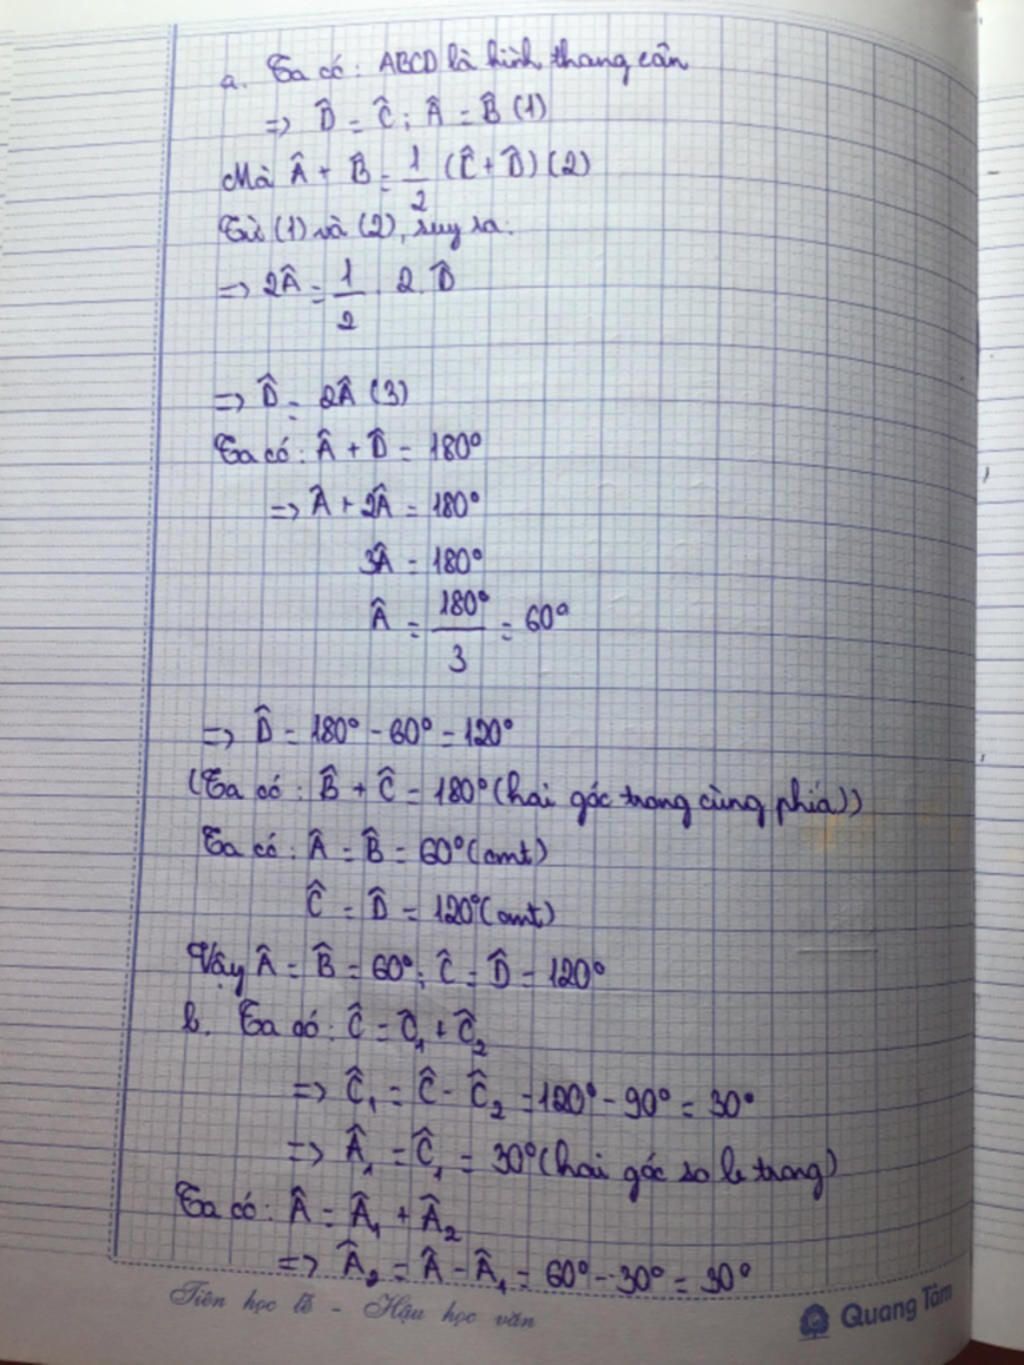 a. Ta có: ABCD là hình thang cân
=> D̂ = Ĉ; Â = B̂ (1)
Mà Â + B̂ = 1/2 (Ĉ + D̂) (2)
Từ (1) và (2), suy ra:
=> 2Â = 1/2 . 2.D̂
=> D̂ = 2Â (3)
Ta có: Â + D̂ = 180°
=> Â + 2Â = 180°
3Â = 180°
Â = 180°/3 = 60°
=> D̂ = 180° - 60° = 120°
(Ta có: B̂ + Ĉ = 180° (hai góc trong cùng phía))
Ta có: Â = B̂ = 60° (cmt)
Ĉ = D̂ = 120° (cmt)
Vậy Â = B̂ = 60°; Ĉ = D̂ = 120°
b. Ta có: Ĉ = Ĉ₁ + Ĉ₂
=> Ĉ₁ = Ĉ - Ĉ₂ = 120° - 90° = 30°
=> Â₁ = Ĉ₁ = 30° (hai góc so le trong)
Ta có: Â = Â₁ + Â₂
=> Â₂ = Â - Â₁ = 60° - 30° = 30°
Tiên học lễ - Hậu học văn
Quang Tâm